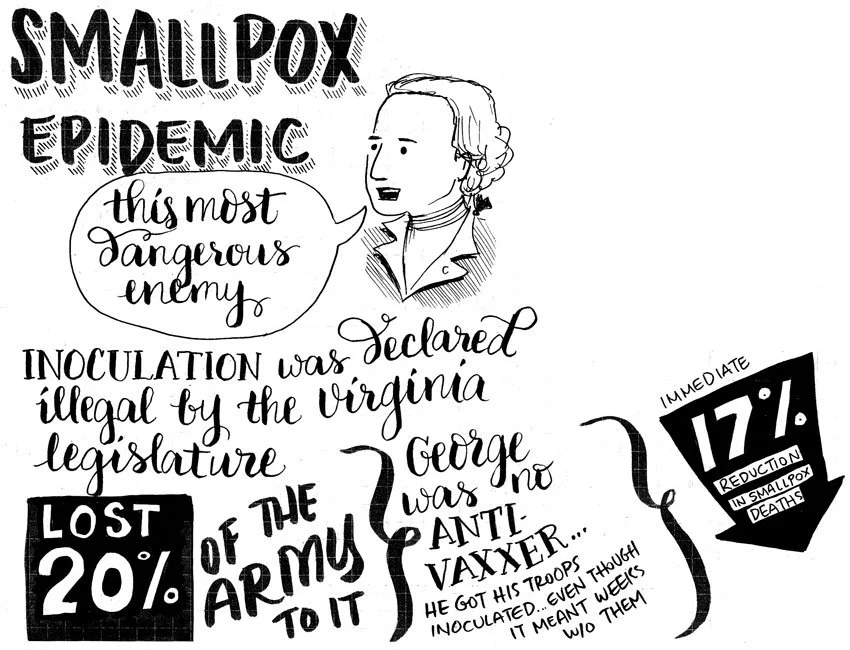 SMALLPOX
EPIDEMIC
this most
dangerous
enemy
INOCULATION was declared
illegal by the Virginia
legislature
LOST
20%
OF THE
ARMY
TO IT
George
was no
ANTI-
VAXXER...
HE GOT HIS TROOPS
INOCULATED... EVEN THOUGH
IT MEANT WEEKS
W/O THEM
IMMEDIATE
17%
REDUCTION
IN SMALLPOX
DEATHS